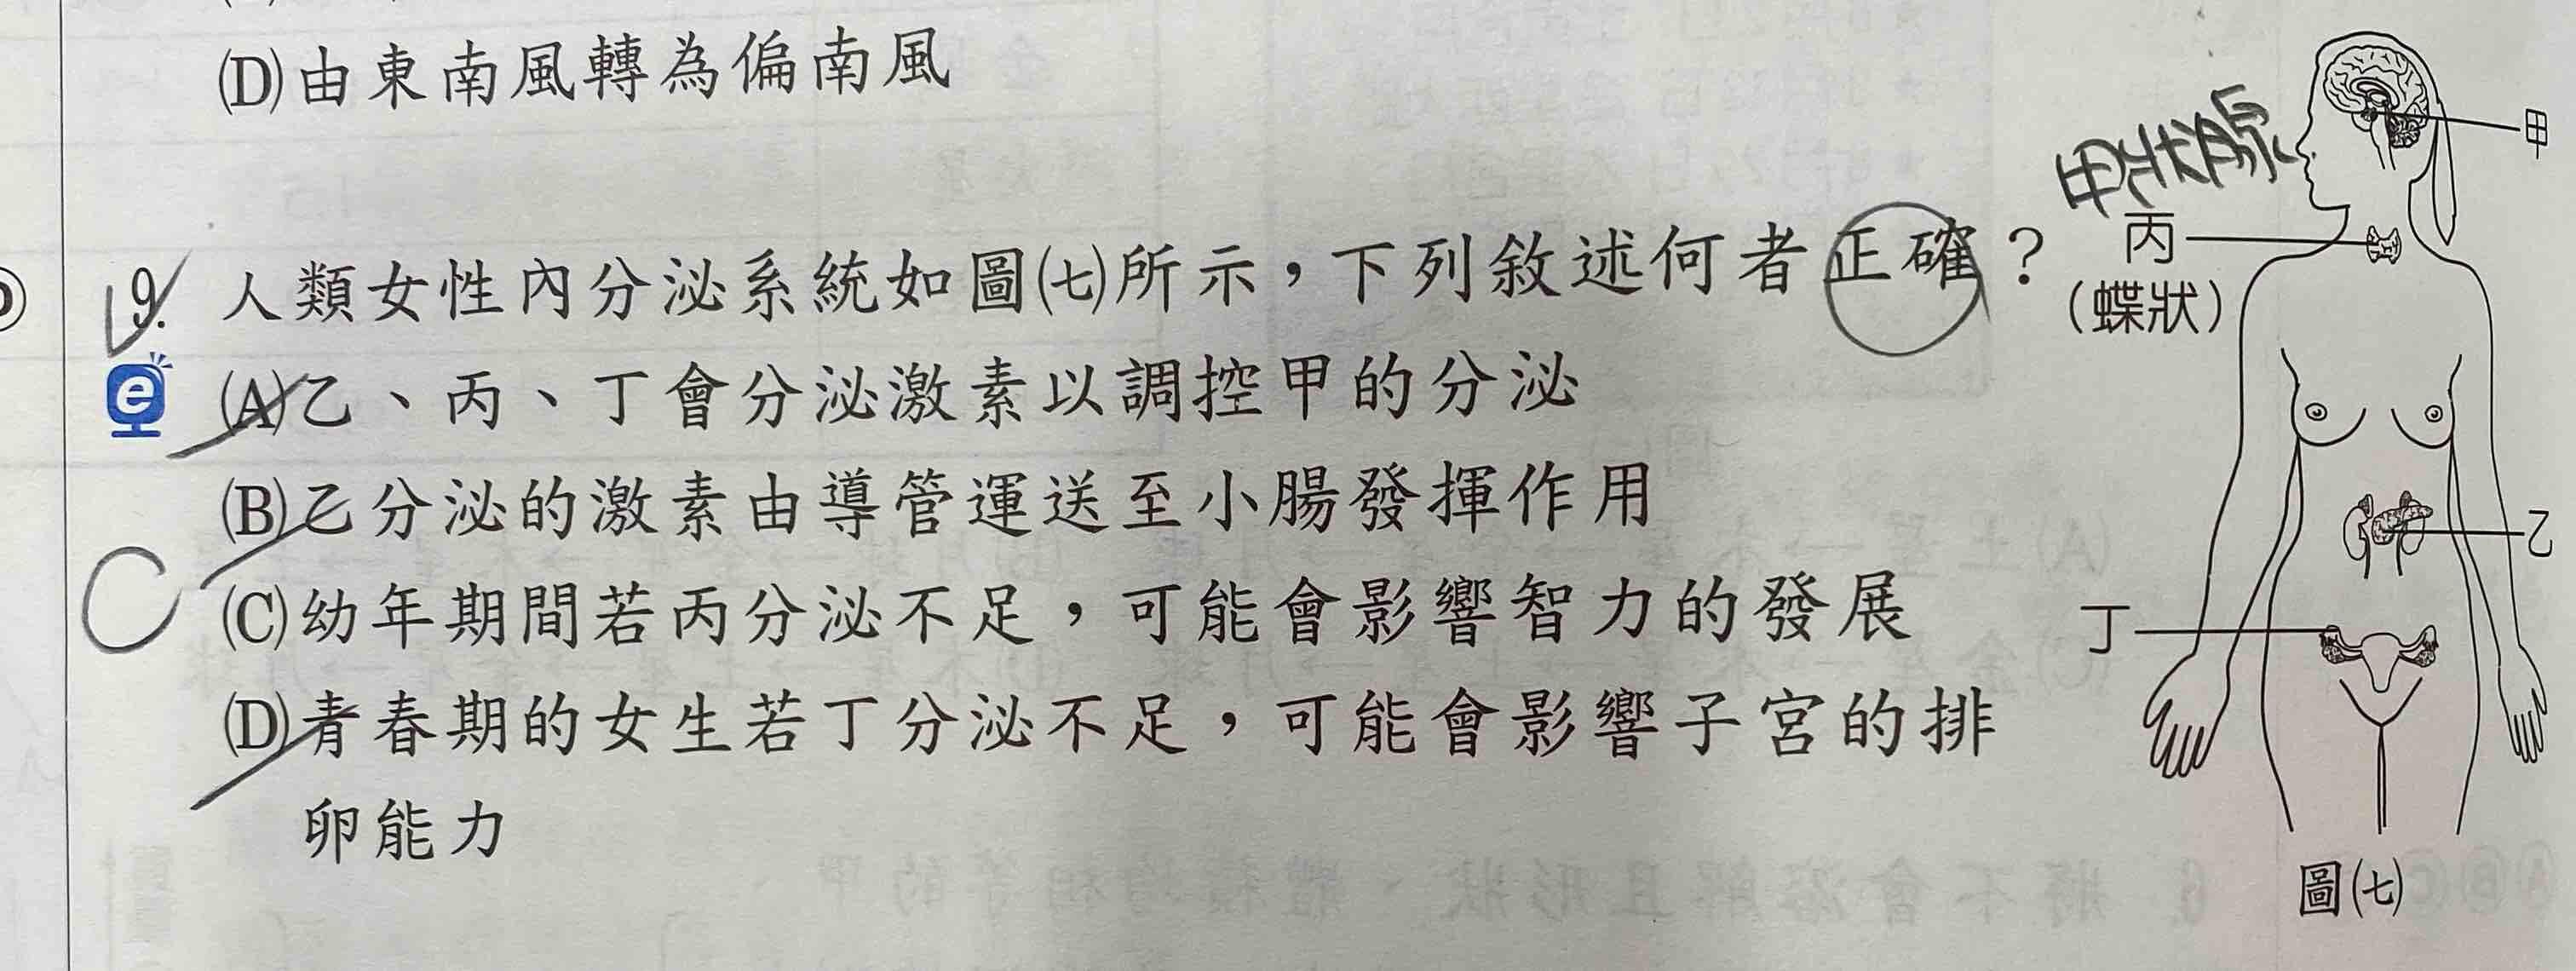 (D)由東南風轉為偏南風
9. 人類女性內分泌系統如圖(七)所示，下列敘述何者正確？
(A)乙、丙、丁會分泌激素以調控甲的分泌
(B)乙分泌的激素由導管運送至小腸發揮作用
(C)幼年期間若丙分泌不足，可能會影響智力的發展
(D)青春期的女生若丁分泌不足，可能會影響子宮的排
卵能力
甲狀腺
甲
丙
（蝶狀）
乙
丁
圖(七)